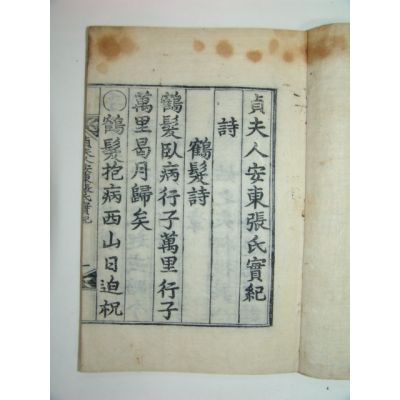 貞夫人安東張氏實紀
詩
鶴髮詩
鶴髮臥病行子萬里行子
萬里曷月歸矣
鶴髮抱病西山日迫祝
貞夫人安東張氏實紀